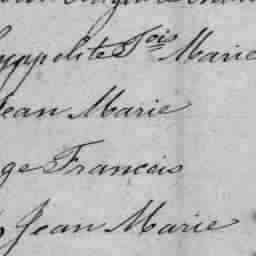 hyppolite Fois Marie
Jean Marie
ge Francois
Jean Marie